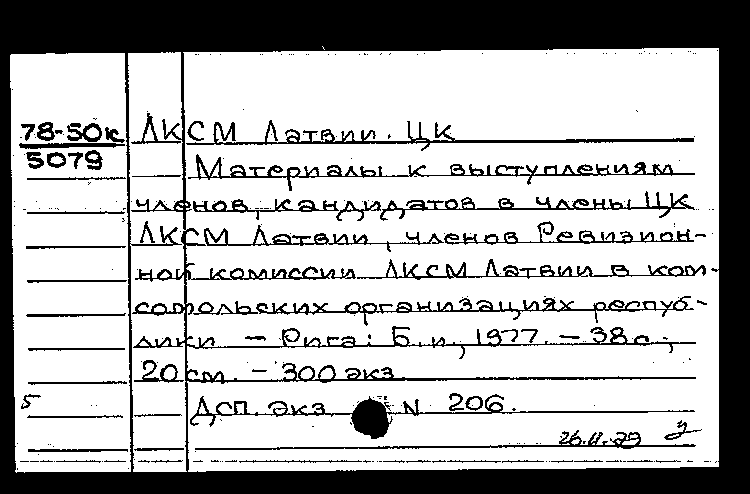 78-50к
5079
ЛКСМ Латвии. ЦК
Материалы к выступлениям
членов, кандидатов в члены ЦК
ЛКСМ Латвии, членов Ревизион-
ной комиссии ЛКСМ Латвии в ком-
сомольских организациях респуб-
лики – Рига: Б.и., 1977. – 38с.;
20см. – 300 экз
5
Дсп. экз N 206.